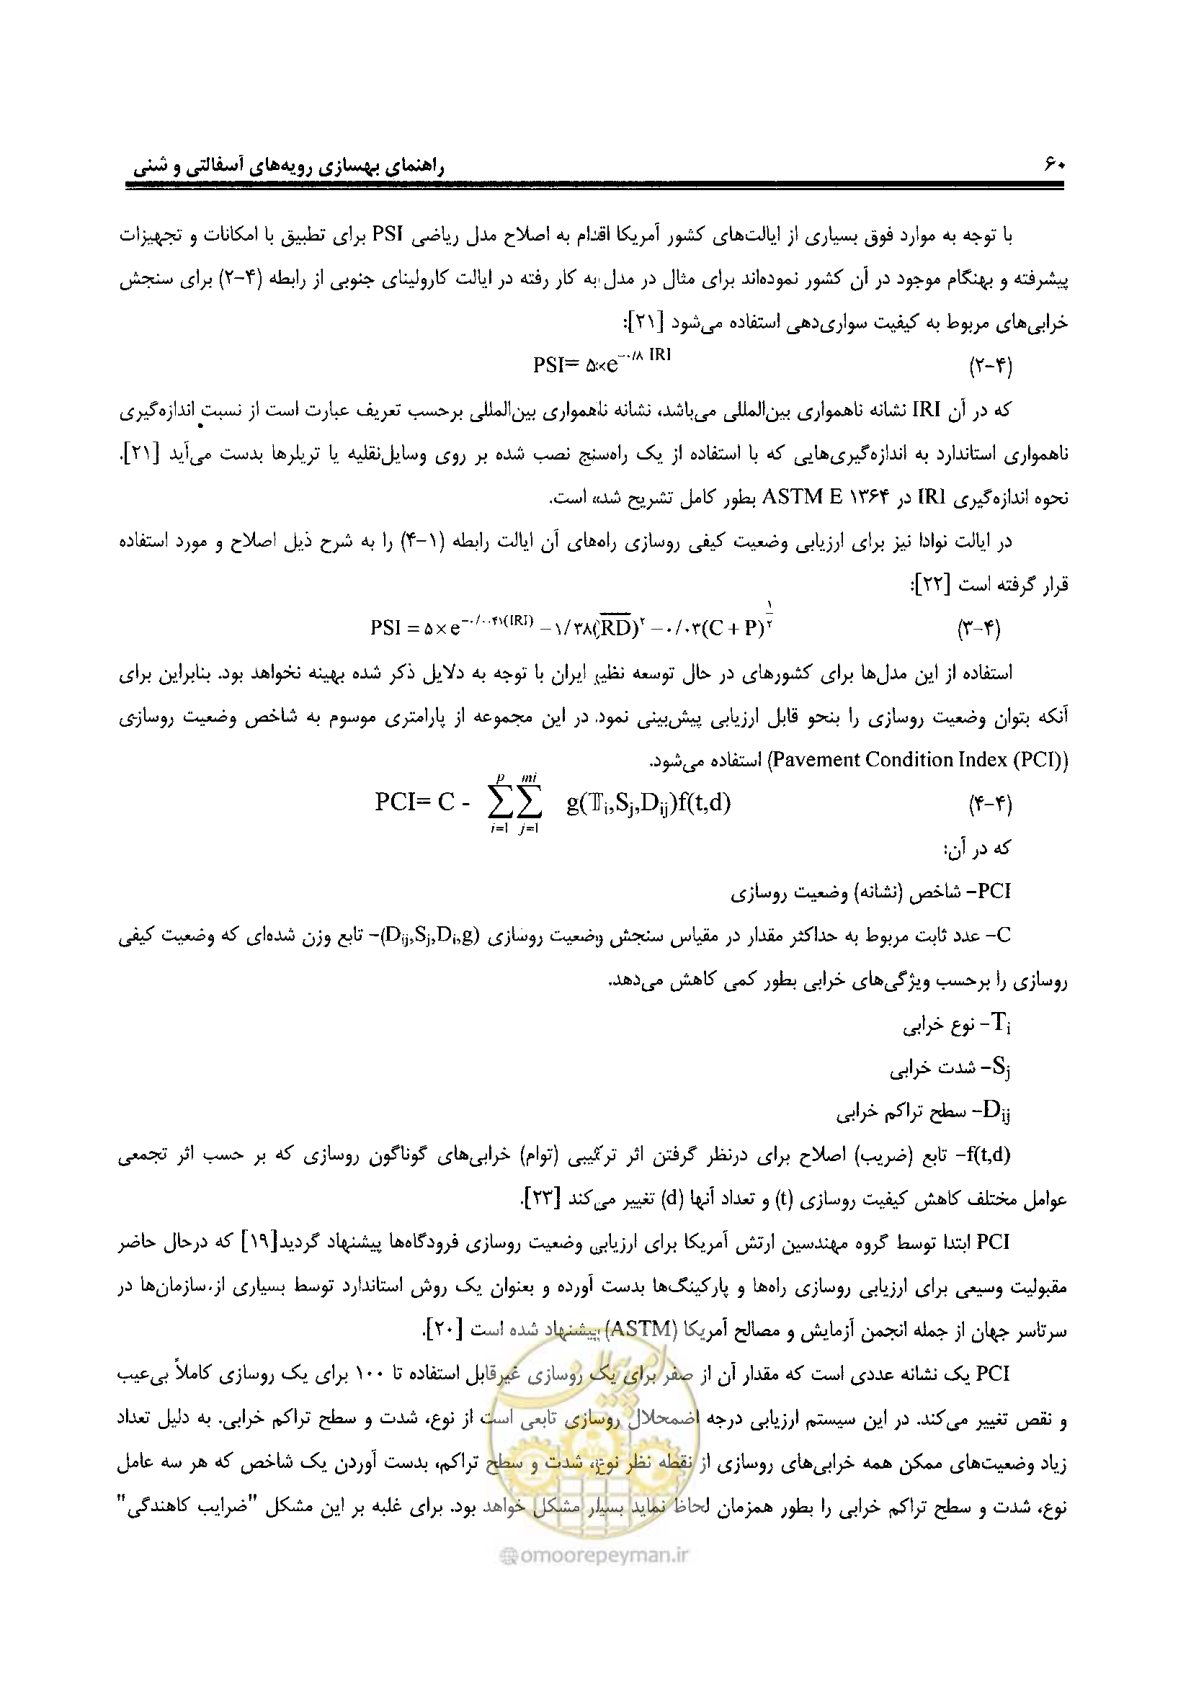 ۶۰
راهنمای بهسازی رویه‌های آسفالتی و شنی
با توجه به موارد فوق بسیاری از ایالت‌های کشور آمریکا اقدام به اصلاح مدل ریاضی PSI برای تطبیق با امکانات و تجهیزات
پیشرفته و بهنگام موجود در آن کشور نموده‌اند برای مثال در مدل به کار رفته در ایالت کارولینای جنوبی از رابطه (۴-۲) برای سنجش
خرابی‌های مربوط به کیفیت سواری‌دهی استفاده می‌شود [۲۱]:
(۲-۴) PSI= ۵×e^-۰/۸ IRI
که در آن IRI نشانه ناهمواری بین‌المللی می‌باشد، نشانه ناهمواری بین‌المللی برحسب تعریف عبارت است از نسبت اندازه‌گیری
ناهمواری استاندارد به اندازه‌گیری‌هایی که با استفاده از یک راه‌سنج نصب شده بر روی وسایل‌نقلیه یا تریلرها بدست می‌آید [۲۱].
نحوه اندازه‌گیری IRI در ASTM E ۱۳۶۴ بطور کامل تشریح شده است.
در ایالت نوادا نیز برای ارزیابی وضعیت کیفی روسازی راه‌های آن ایالت رابطه (۱-۴) را به شرح ذیل اصلاح و مورد استفاده
قرار گرفته است [۲۲]:
(۳-۴) PSI = ۵×e^-۰/۰۰۴۱(IRI) -۱/۳۸(RD)^۲ -۰/۰۳(C+P)^۱/۲
استفاده از این مدل‌ها برای کشورهای در حال توسعه نظیر ایران با توجه به دلایل ذکر شده بهینه نخواهد بود. بنابراین برای
آنکه بتوان وضعیت روسازی را بنحو قابل ارزیابی پیش‌بینی نمود، در این مجموعه از پارامتری موسوم به شاخص وضعیت روسازی
(Pavement Condition Index (PCI)) استفاده می‌شود.
(۴-۴) PCI= C - ∑(i=1..p)∑(j=1..mi) g(Ti,Sj,Dij)f(t,d)
که در آن:
PCI- شاخص (نشانه) وضعیت روسازی
C- عدد ثابت مربوط به حداکثر مقدار در مقیاس سنجش وضعیت روسازی (Dij,Sj,Di,g)- تابع وزن شده‌ای که وضعیت کیفی
روسازی را برحسب ویژگی‌های خرابی بطور کمی کاهش می‌دهد.
Ti- نوع خرابی
Sj- شدت خرابی
Dij- سطح تراکم خرابی
f(t,d)- تابع (ضریب) اصلاح برای درنظر گرفتن اثر ترکیبی (توام) خرابی‌های گوناگون روسازی که بر حسب اثر تجمعی
عوامل مختلف کاهش کیفیت روسازی (t) و تعداد آنها (d) تغییر می‌کند [۲۳].
PCI ابتدا توسط گروه مهندسین ارتش آمریکا برای ارزیابی وضعیت روسازی فرودگاه‌ها پیشنهاد گردید[۱۹] که درحال حاضر
مقبولیت وسیعی برای ارزیابی روسازی راه‌ها و پارکینگ‌ها بدست آورده و بعنوان یک روش استاندارد توسط بسیاری از سازمان‌ها در
سرتاسر جهان از جمله انجمن آزمایش و مصالح آمریکا (ASTM) پیشنهاد شده است [۲۰].
PCI یک نشانه عددی است که مقدار آن از صفر برای یک روسازی غیرقابل استفاده تا ۱۰۰ برای یک روسازی کاملاً بی‌عیب
و نقص تغییر می‌کند. در این سیستم ارزیابی درجه اضمحلال روسازی تابعی است از نوع، شدت و سطح تراکم خرابی. به دلیل تعداد
زیاد وضعیت‌های ممکن همه خرابی‌های روسازی از نقطه نظر نوع، شدت و سطح تراکم، بدست آوردن یک شاخص که هر سه عامل
نوع، شدت و سطح تراکم خرابی را بطور همزمان لحاظ نماید بسیار مشکل خواهد بود. برای غلبه بر این مشکل "ضرایب کاهندگی"
امور پیمان
@omoorepeyman.ir